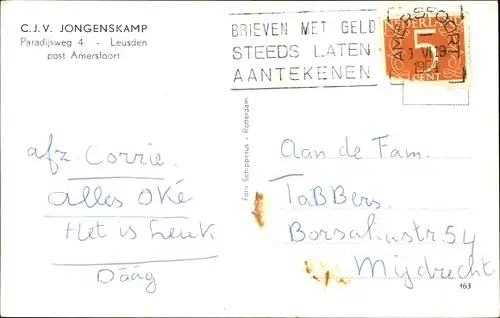 C.J.V. JONGENSKAMP
Paradijsweg 4 - Leusden
post Amersfoort
BRIEVEN MET GELD
STEEDS LATEN
AANTEKENEN
AMERSFOORT
NEDERLAND
5
CENT
Foto Schipperus - Rotterdam
afz. Corrie.
alles OKé
Het is Leuk
Dáág
aan de Fam.
TaBBers.
str. 54
Mijdrecht
463